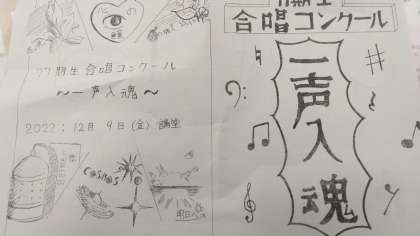 心の
77期生 合唱コンクール
〜一声入魂〜
2022: 12月 9日(金) 講堂
COSMOS
明日へ
77期生
合唱コンクール
一声入魂